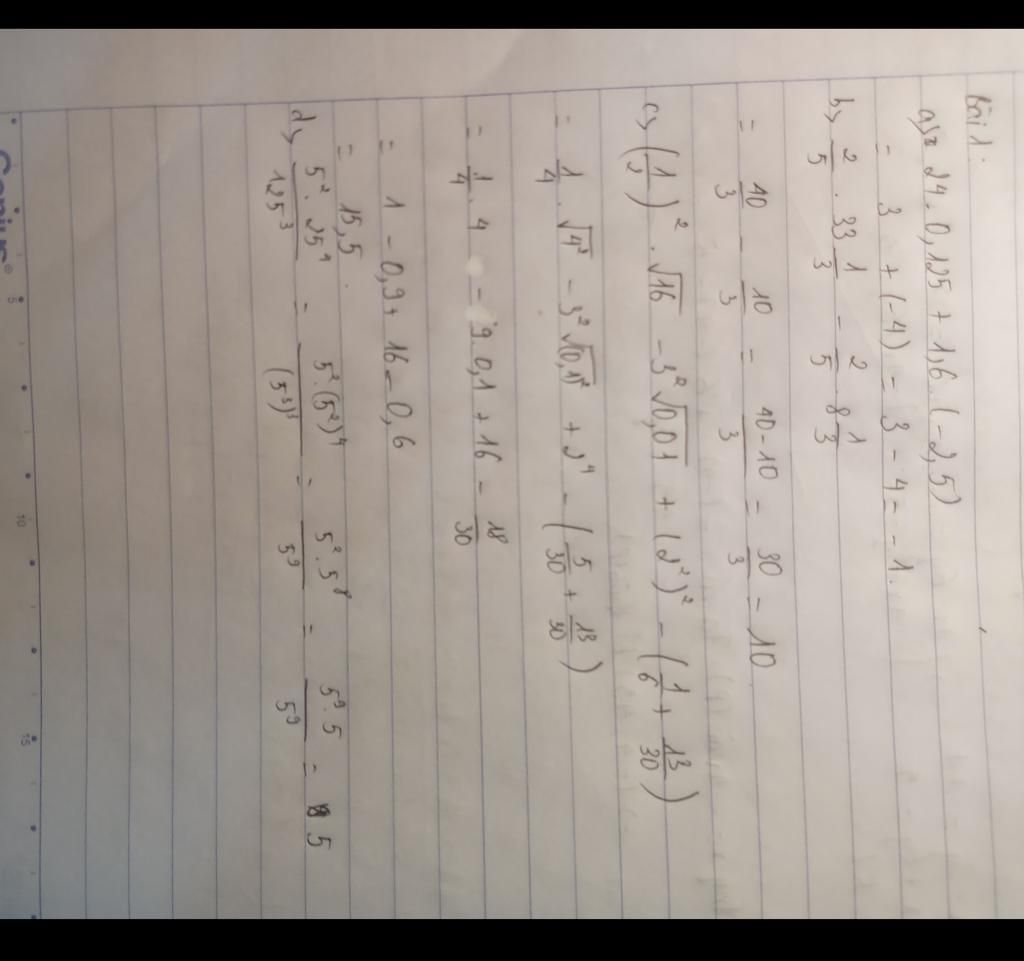 Bài 1:
a) 24. 0,125 + 1,6. (-2,5)
= 3 + (-4) = 3 - 4 = -1.
b) 2/5 . 33 1/3 - 2/5 . 8 1/3
= 40/3 - 10/3 = 40-10/3 = 30/3 = 10
c) (1/2)² . √16 - 3²√0,01 + (2²)² - (1/6 + 13/30)
= 1/4 . √4² - 3²√0,1² + 2⁴ - (5/30 + 13/30)
= 1/4 . 4 - 9. 0,1 + 16 - 18/30
= 1 - 0,9 + 16 - 0,6
= 15,5.
d) 5² . 25⁴/125³ = 5².(5²)⁴/(5³)³ = 5².5⁸/5⁹ = 5⁹.5/5⁹ = 5
5 10 15